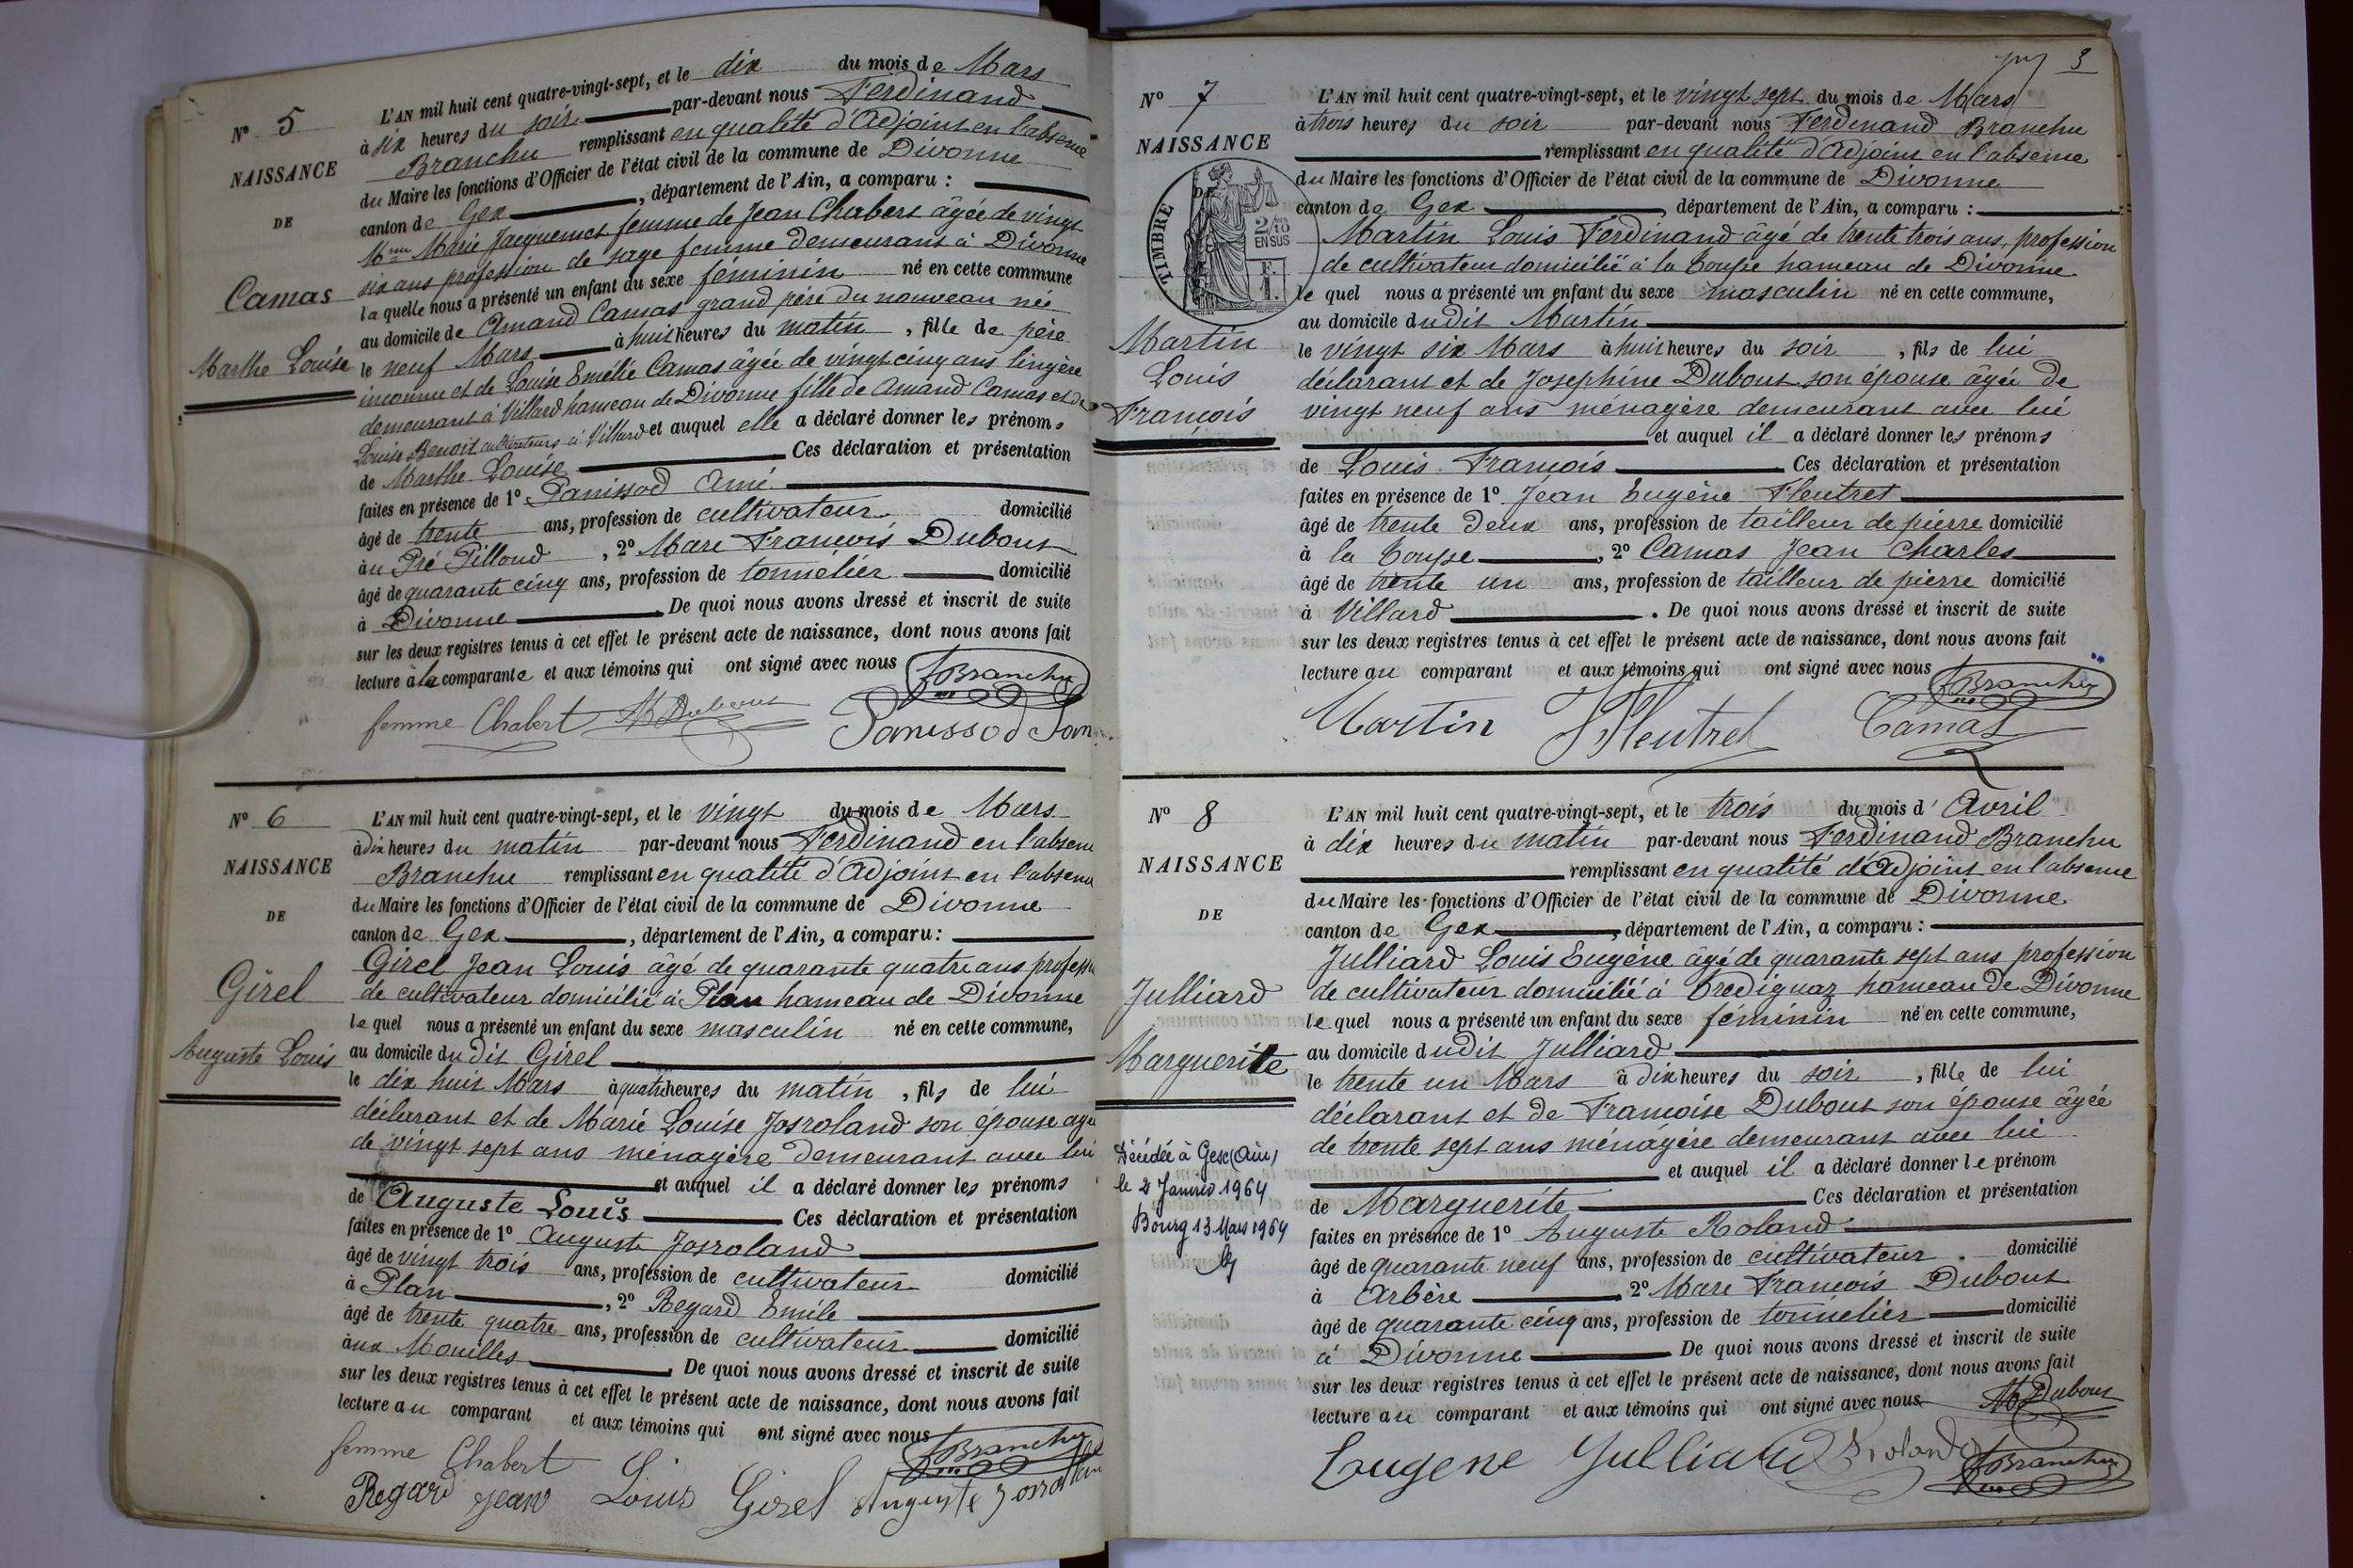 N° 5
NAISSANCE
DE
Camas
Marthe Louise
L'AN mil huit cent quatre-vingt-sept, et le dix du mois de Mars
à six heures du soir par-devant nous Ferdinand
Branchu remplissant en qualité d'Adjoint en l'absence
du Maire les fonctions d'Officier de l'état civil de la commune de Divonne
canton de Gex, département de l'Ain, a comparu :
Mme Marie Jacquemet femme de Jean Chabert âgée de vingt
six ans profession de sage femme demeurant à Divonne
la quelle nous a présenté un enfant du sexe féminin né en cette commune
au domicile de Amand Camas grand père du nouveau née
le neuf Mars à huit heures du matin, fille de père
inconnu et de Louise Emélie Camas âgée de vingt cinq ans lingère
demeurant à Villard hameau de Divonne fille de Amand Camas et de
Louise Benoit cultivateurs à Villard et auquel elle a déclaré donner les prénoms
de Marthe Louise Ces déclaration et présentation
faites en présence de 1° Panissod Amé
âgé de trente ans, profession de cultivateur domicilié
au Pré Pilloud, 2° Marc François Dubout
âgé de quarante cinq ans, profession de tonnelier domicilié
à Divonne. De quoi nous avons dressé et inscrit de suite
sur les deux registres tenus à cet effet le présent acte de naissance, dont nous avons fait
lecture à la comparante et aux témoins qui ont signé avec nous
Branchu
femme Chabert M Dubout Panissod
N° 6
NAISSANCE
DE
Girel
Auguste Louis
L'AN mil huit cent quatre-vingt-sept, et le vingt du mois de Mars
à dix heures du matin par-devant nous Ferdinand en l'absence
Branchu remplissant en qualité d'Adjoint en l'absence
du Maire les fonctions d'Officier de l'état civil de la commune de Divonne
canton de Gex, département de l'Ain, a comparu :
Girel Jean Louis âgé de quarante quatre ans profession
de cultivateur domicilié à Plan hameau de Divonne
le quel nous a présenté un enfant du sexe masculin né en cette commune,
au domicile du dit Girel
le dix huit Mars à quatre heures du matin, fils de lui
déclarant et de Marie Louise Josroland son épouse agée
de vingt sept ans ménagère demeurant avec lui
et auquel il a déclaré donner les prénoms
de Auguste Louis Ces déclaration et présentation
faites en présence de 1° Auguste Josroland
âgé de vingt trois ans, profession de cultivateur domicilié
à Plan, 2° Regard Emile
âgé de trente quatre ans, profession de cultivateur domicilié
aux Mouilles. De quoi nous avons dressé et inscrit de suite
sur les deux registres tenus à cet effet le présent acte de naissance, dont nous avons fait
lecture au comparant et aux témoins qui ont signé avec nous
Branchu
femme Chabert
Regard Jean Louis Girel Auguste Josroland
3
N° 7
NAISSANCE
DE
TIMBRE
2/10
EN SUS
Martin
Louis
François
L'AN mil huit cent quatre-vingt-sept, et le vingt sept du mois de Mars
à trois heures du soir par-devant nous Ferdinand Branchu
remplissant en qualité d'Adjoint en l'absence
du Maire les fonctions d'Officier de l'état civil de la commune de Divonne
canton de Gex, département de l'Ain, a comparu :
Martin Louis Ferdinand âgé de trente trois ans, profession
de cultivateur domicilié à la Coupe hameau de Divonne
le quel nous a présenté un enfant du sexe masculin né en cette commune,
au domicile dudit Martin
le vingt six Mars à huit heures du soir, fils de lui
déclarant et de Josephine Dubout son épouse âgée de
vingt neuf ans ménagère demeurant avec lui
et auquel il a déclaré donner les prénoms
de Louis François Ces déclaration et présentation
faites en présence de 1° Jean Eugène Fleutret
âgé de trente deux ans, profession de tailleur de pierre domicilié
à la Coupe, 2° Camas Jean Charles
âgé de trente un ans, profession de tailleur de pierre domicilié
à Villard. De quoi nous avons dressé et inscrit de suite
sur les deux registres tenus à cet effet le présent acte de naissance, dont nous avons fait
lecture au comparant et aux témoins qui ont signé avec nous
Branchu
Martin Fleutret Camas
N° 8
NAISSANCE
DE
Julliard
Marguerite
Décédée à Gex (Ain)
le 2 Janvier 1964
Bourg 13 Mars 1964
L'AN mil huit cent quatre-vingt-sept, et le trois du mois d'Avril
à dix heures du matin par-devant nous Ferdinand Branchu
remplissant en qualité d'Adjoint en l'absence
du Maire les fonctions d'Officier de l'état civil de la commune de Divonne
canton de Gex, département de l'Ain, a comparu :
Julliard Louis Eugène âgé de quarante sept ans profession
de cultivateur domicilié à Crediguaz hameau de Divonne
le quel nous a présenté un enfant du sexe féminin né en cette commune,
au domicile dudit Julliard
le trente un Mars à dix heures du soir, fille de lui
déclarant et de Françoise Dubout son épouse âgée
de trente sept ans ménagère demeurant avec lui
et auquel il a déclaré donner le prénom
de Marguerite Ces déclaration et présentation
faites en présence de 1° Auguste Roland
âgé de quarante neuf ans, profession de cultivateur. domicilié
à Arbère 2° Marc François Dubout
âgé de quarante cinq ans, profession de tonnelier domicilié
à Divonne De quoi nous avons dressé et inscrit de suite
sur les deux registres tenus à cet effet le présent acte de naissance, dont nous avons fait
lecture au comparant et aux témoins qui ont signé avec nous
M Dubout
Eugene Julliard Roland Branchu